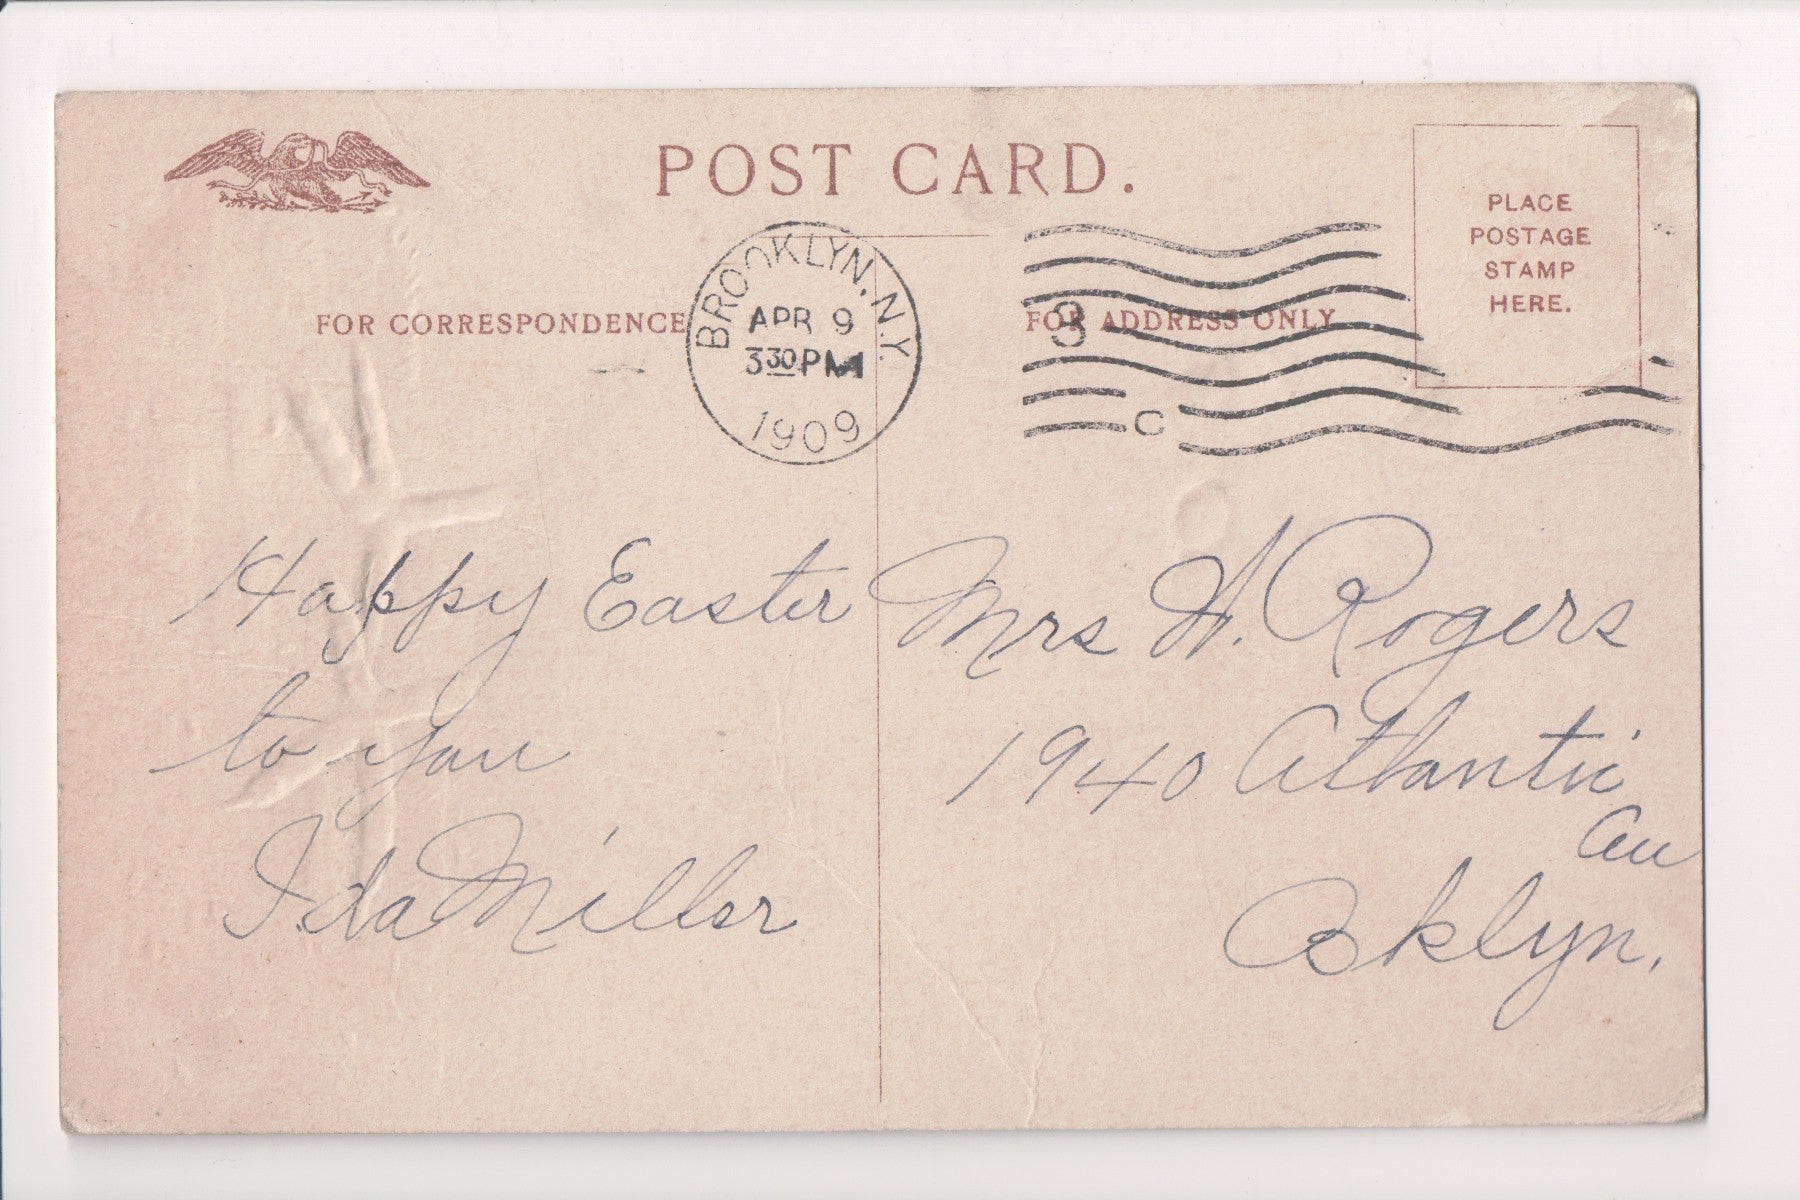 POST CARD.
PLACE
POSTAGE
STAMP
HERE.
FOR CORRESPONDENCE
FOR ADDRESS ONLY
BROOKLYN, N.Y.
APR 9
3 30 PM
1909
3
C
Happy Easter
to you
Ida Miller
Mrs H. Rogers
1940 Atlantic
Av
Bklyn.